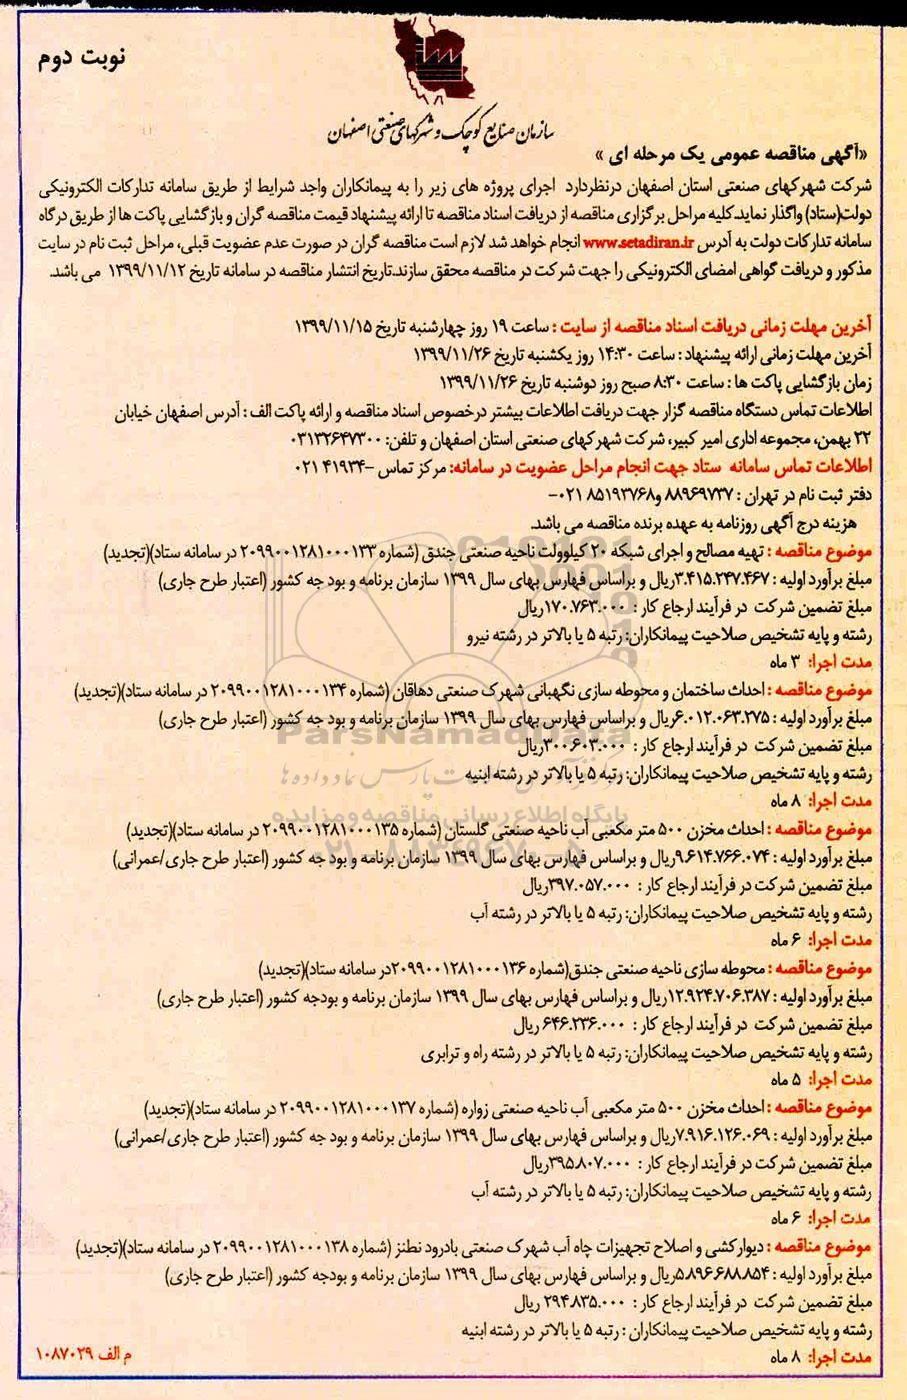 نوبت دوم
سازمان صنایع کوچک و شهرکهای صنعتی اصفهان
«آگهی مناقصه عمومی یک مرحله ای »
شرکت شهرکهای صنعتی استان اصفهان درنظردارد اجرای پروژه های زیر را به پیمانکاران واجد شرایط از طریق سامانه تدارکات الکترونیکی
دولت(ستاد) واگذار نماید.کلیه مراحل برگزاری مناقصه از دریافت اسناد مناقصه تا ارائه پیشنهاد قیمت مناقصه گران و بازگشایی پاکت ها از طریق درگاه
سامانه تدارکات دولت به آدرس www.setadiran.ir انجام خواهد شد لازم است مناقصه گران در صورت عدم عضویت قبلی، مراحل ثبت نام در سایت
مذکور و دریافت گواهی امضای الکترونیکی را جهت شرکت در مناقصه محقق سازند.تاریخ انتشار مناقصه در سامانه تاریخ ۱۳۹۹/۱۱/۱۲ می باشد.
آخرین مهلت زمانی دریافت اسناد مناقصه از سایت : ساعت ۱۹ روز چهارشنبه تاریخ ۱۳۹۹/۱۱/۱۵
آخرین مهلت زمانی ارائه پیشنهاد : ساعت ۱۴:۳۰ روز یکشنبه تاریخ ۱۳۹۹/۱۱/۲۶
زمان بازگشایی پاکت ها : ساعت ۸:۳۰ صبح روز دوشنبه تاریخ ۱۳۹۹/۱۱/۲۶
اطلاعات تماس دستگاه مناقصه گزار جهت دریافت اطلاعات بیشتر درخصوص اسناد مناقصه و ارائه پاکت الف : آدرس اصفهان خیابان
۲۲ بهمن، مجموعه اداری امیر کبیر، شرکت شهرکهای صنعتی استان اصفهان و تلفن: ۰۳۱۳۲۶۴۷۳۰۰
اطلاعات تماس سامانه ستاد جهت انجام مراحل عضویت در سامانه: مرکز تماس –۴۱۹۳۴ ۰۲۱
دفتر ثبت نام در تهران : ۸۸۹۶۹۷۳۷ و۸۵۱۹۳۷۶۸ ۰۲۱–
هزینه درج آگهی روزنامه به عهده برنده مناقصه می باشد.
موضوع مناقصه : تهیه مصالح و اجرای شبکه ۲۰ کیلوولت ناحیه صنعتی جندق (شماره ۲۰۹۹۰۰۱۲۸۱۰۰۰۱۳۳ در سامانه ستاد)(تجدید)
مبلغ برآورد اولیه : ۳.۴۱۵.۲۴۷.۴۶۷ریال و براساس فهارس بهای سال ۱۳۹۹ سازمان برنامه و بود جه کشور (اعتبار طرح جاری)
مبلغ تضمین شرکت در فرآیند ارجاع کار : ۱۷۰.۷۶۳.۰۰۰ریال
رشته و پایه تشخیص صلاحیت پیمانکاران: رتبه ۵ یا بالاتر در رشته نیرو
مدت اجرا: ۳ ماه
موضوع مناقصه : احداث ساختمان و محوطه سازی نگهبانی شهرک صنعتی دهاقان (شماره ۲۰۹۹۰۰۱۲۸۱۰۰۰۱۳۴ در سامانه ستاد)(تجدید)
مبلغ برآورد اولیه : ۶.۰۱۲.۰۶۳.۲۷۵ریال و براساس فهارس بهای سال ۱۳۹۹ سازمان برنامه و بود جه کشور (اعتبار طرح جاری)
مبلغ تضمین شرکت در فرآیند ارجاع کار : ۳۰۰.۶۰۳.۰۰۰ریال
رشته و پایه تشخیص صلاحیت پیمانکاران: رتبه ۵ یا بالاتر در رشته ابنیه
مدت اجرا: ۸ ماه
موضوع مناقصه : احداث مخزن ۵۰۰ متر مکعبی آب ناحیه صنعتی گلستان (شماره ۲۰۹۹۰۰۱۲۸۱۰۰۰۱۳۵ در سامانه ستاد)(تجدید)
مبلغ برآورد اولیه : ۹.۶۱۴.۷۶۶.۰۷۴ریال و براساس فهارس بهای سال ۱۳۹۹ سازمان برنامه و بود جه کشور (اعتبار طرح جاری/عمرانی)
مبلغ تضمین شرکت در فرآیند ارجاع کار : ۳۹۷.۰۵۷.۰۰۰ریال
رشته و پایه تشخیص صلاحیت پیمانکاران: رتبه ۵ یا بالاتر در رشته آب
مدت اجرا: ۶ ماه
موضوع مناقصه : محوطه سازی ناحیه صنعتی جندق(شماره ۲۰۹۹۰۰۱۲۸۱۰۰۰۱۳۶در سامانه ستاد)(تجدید)
مبلغ برآورد اولیه : ۱۲.۹۲۴.۷۰۶.۳۸۷ریال و براساس فهارس بهای سال ۱۳۹۹ سازمان برنامه و بودجه کشور (اعتبار طرح جاری)
مبلغ تضمین شرکت در فرآیند ارجاع کار : ۶۴۶.۲۳۶.۰۰۰ ریال
رشته و پایه تشخیص صلاحیت پیمانکاران: رتبه ۵ یا بالاتر در رشته راه و ترابری
مدت اجرا: ۵ ماه
موضوع مناقصه : احداث مخزن ۵۰۰ متر مکعبی آب ناحیه صنعتی زواره (شماره ۲۰۹۹۰۰۱۲۸۱۰۰۰۱۳۷ در سامانه ستاد)(تجدید)
مبلغ برآورد اولیه : ۷.۹۱۶.۱۲۶.۰۶۹ریال و براساس فهارس بهای سال ۱۳۹۹ سازمان برنامه و بود جه کشور (اعتبار طرح جاری/عمرانی)
مبلغ تضمین شرکت در فرآیند ارجاع کار : ۳۹۵.۸۰۷.۰۰۰ریال
رشته و پایه تشخیص صلاحیت پیمانکاران: رتبه ۵ یا بالاتر در رشته آب
مدت اجرا: ۶ ماه
موضوع مناقصه : دیوارکشی و اصلاح تجهیزات چاه آب شهرک صنعتی بادرود نطنز (شماره ۲۰۹۹۰۰۱۲۸۱۰۰۰۱۳۸ در سامانه ستاد)(تجدید)
مبلغ برآورد اولیه : ۵.۸۹۶.۶۸۸.۸۵۴ریال و براساس فهارس بهای سال ۱۳۹۹ سازمان برنامه و بودجه کشور (اعتبار طرح جاری)
مبلغ تضمین شرکت در فرآیند ارجاع کار : ۲۹۴.۸۳۵.۰۰۰ ریال
رشته و پایه تشخیص صلاحیت پیمانکاران : رتبه ۵ یا بالاتر در رشته ابنیه
مدت اجرا: ۸ ماه
م الف ۱۰۸۷۰۲۹
ParsNamadData
پایگاه اطلاع رسانی مناقصه و مزایده